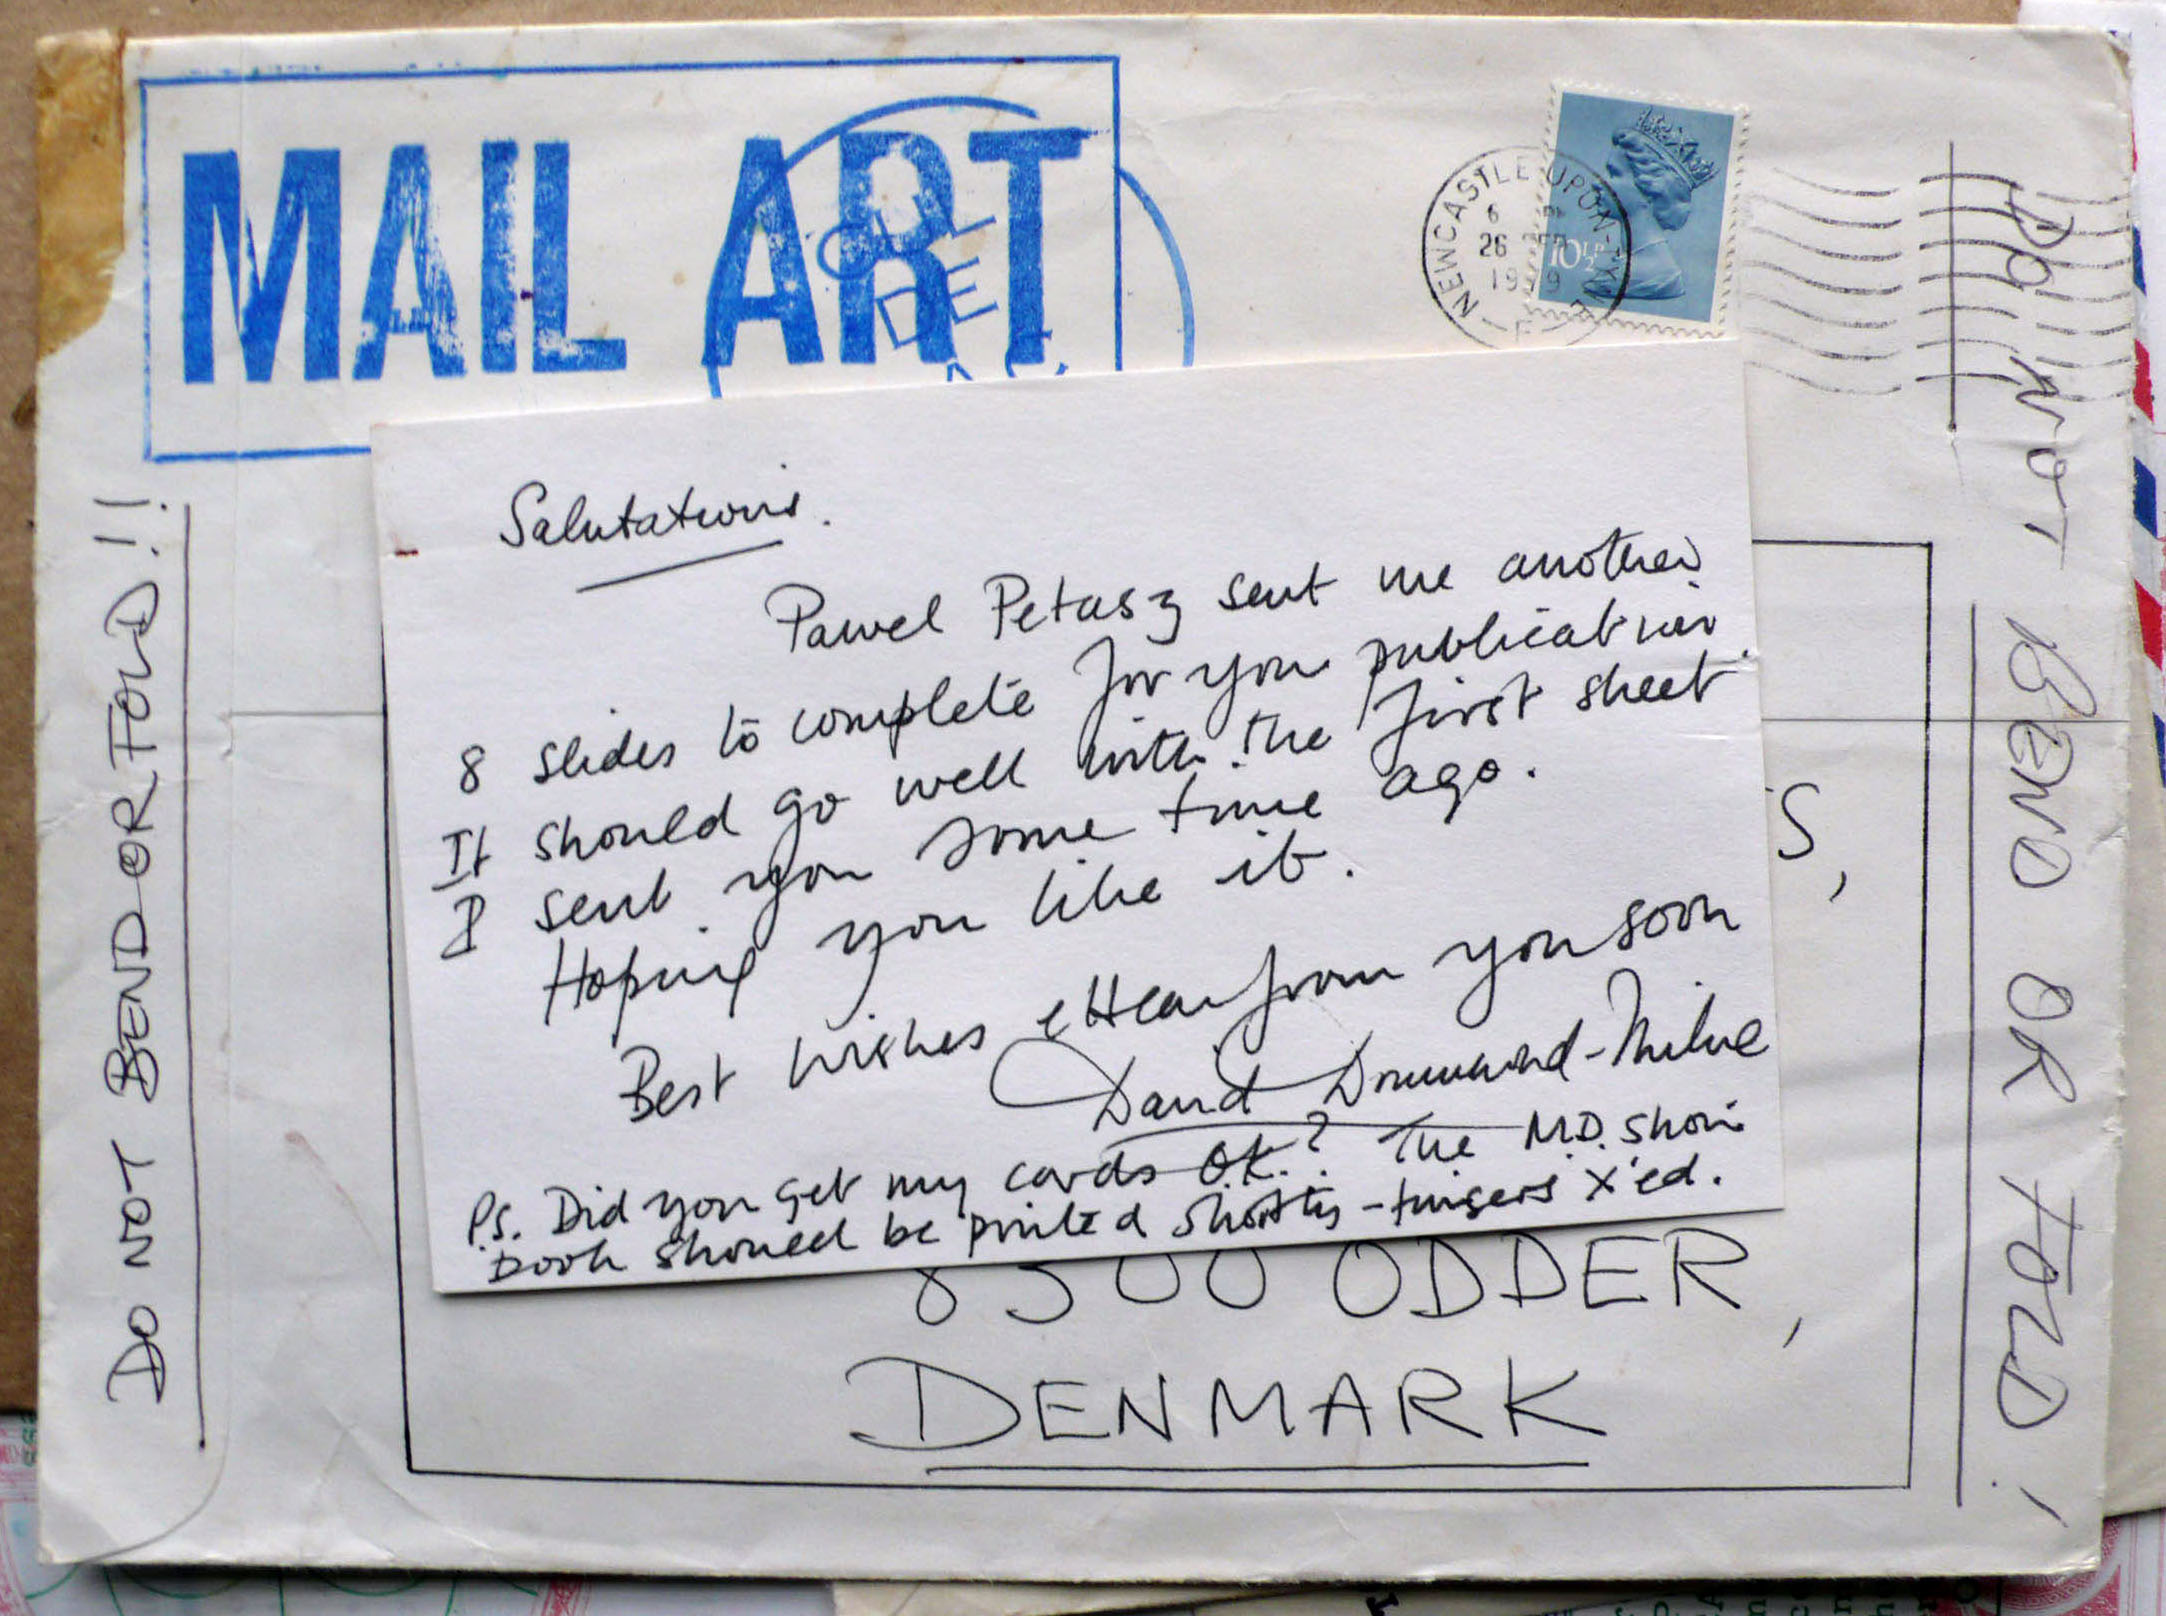 MAIL ART
CUL
DE
NEWCASTLE UPON TYNE
6
26
19 9
F
10½P
DO NOT BEND OR FOLD!!
DO NOT BEND OR FOLD!
Salutations.
Pawel Petasz sent me another
8 slides to complete for your publication.
It should go well with the first sheet
I sent you some time ago.
Hoping you like it.
Best wishes & Hear from you soon
David Drummond-Milne
P.S. Did you get my cards O.K.? The M.D. Show
Book should be printed shortly - fingers X'ed.
S,
8300 ODDER,
DENMARK